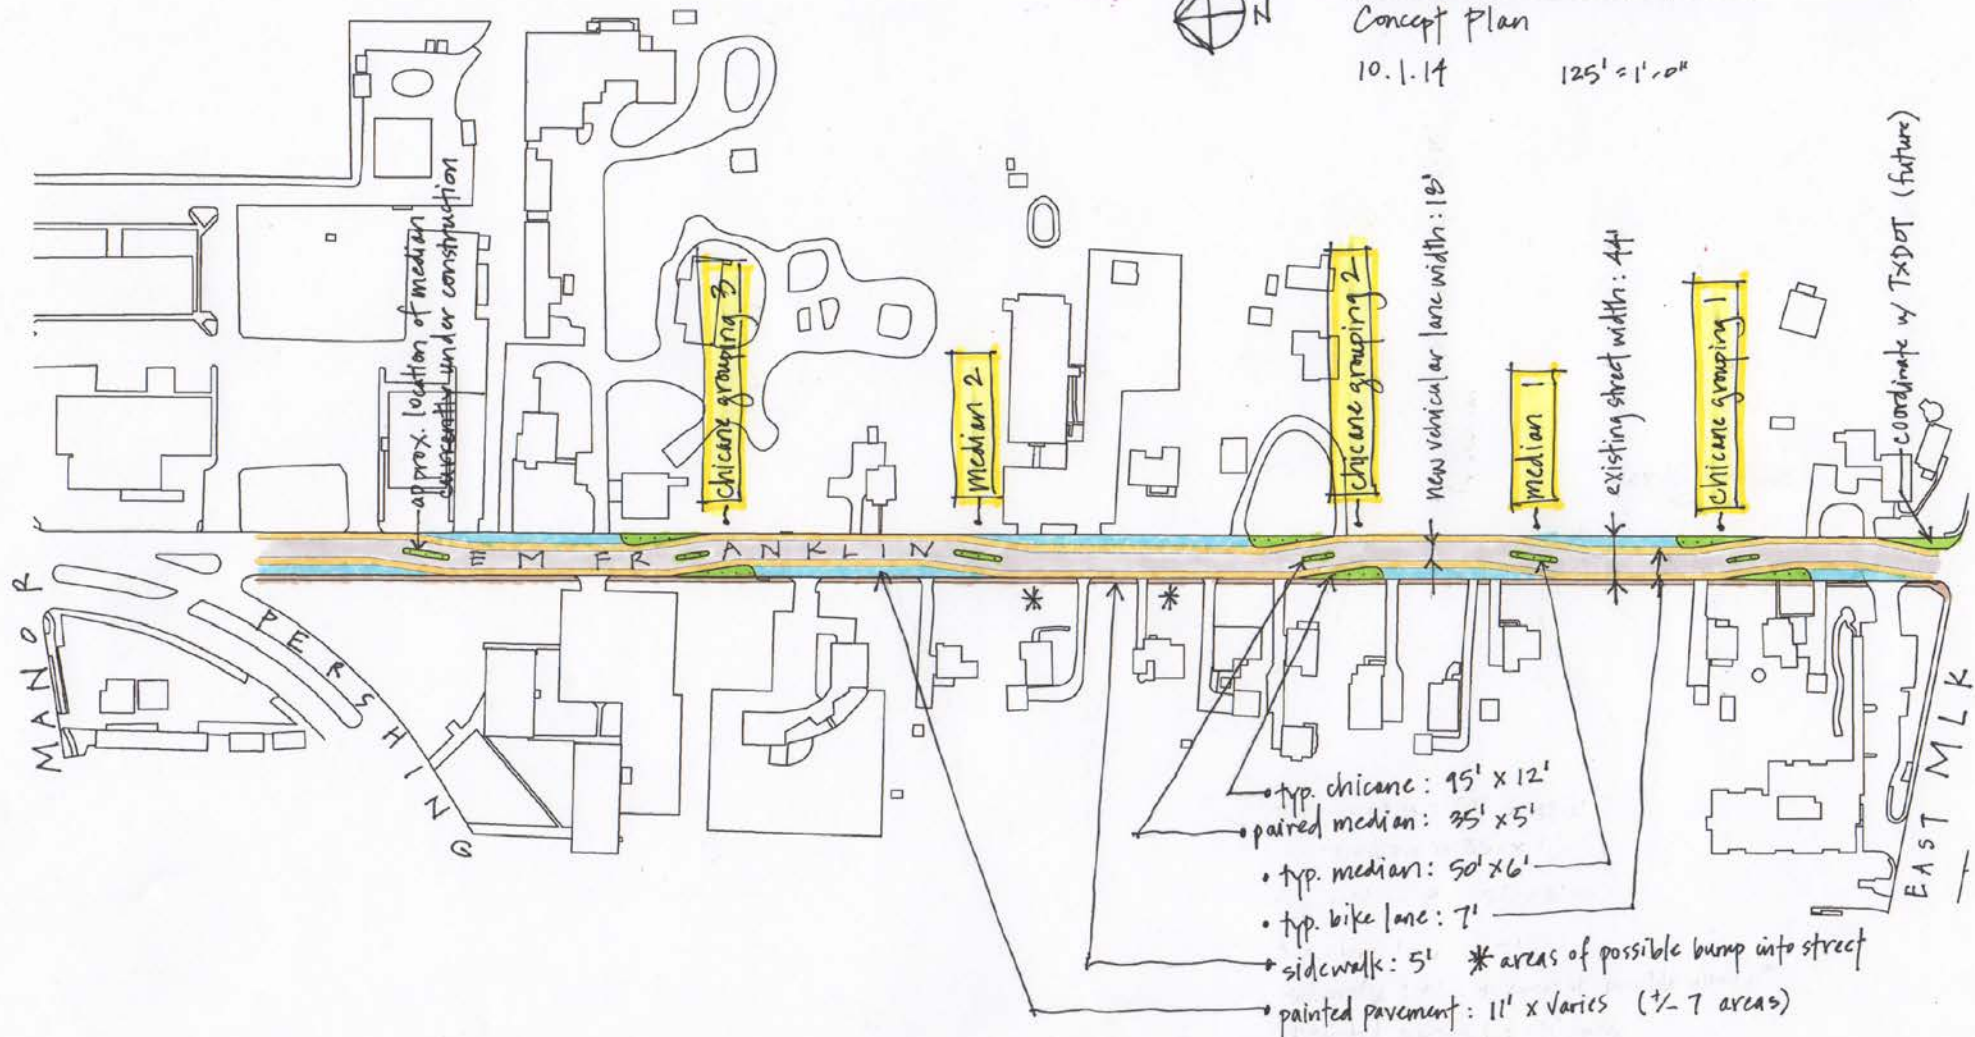 N
Concept Plan
10.1.14 125'=1'-0"
coordinate w/ TXDOT (future)
approx. location of median
currently under construction
chicane grouping 3
median 2
chicane grouping 2
new vehicular lane width: 18'
median 1
existing street width: 44'
chicane grouping 1
E M FRANKLIN
MANOR
PERSHING
EAST MLK
* *
• typ. chicane: 95' x 12'
• paired median: 35' x 5'
• typ. median: 50' x 6'
• typ. bike lane: 7'
• sidewalk: 5' * areas of possible bump into street
• painted pavement: 11' x varies (+/- 7 areas)